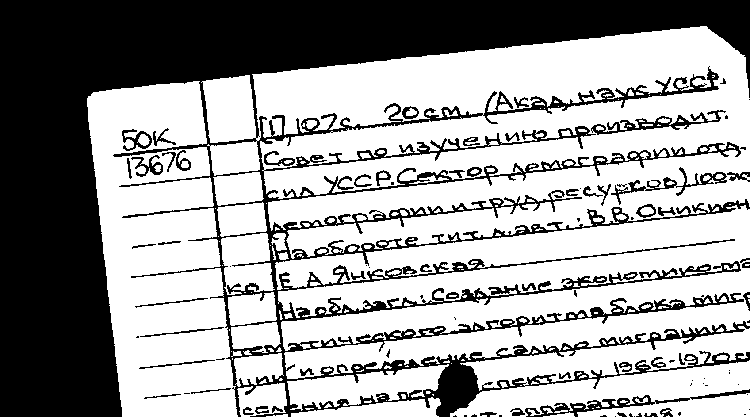 50К
13676
[1], 107с. 20см. (Акад. наук УССР.
Совет по изучению производит.
сил УССР. Сектор демографии отд.
демографии и труд. ресурсов) 100экз
На обороте тит. л. авт.: В.В. Оникиен
ко, Е. А. Янковская.
На обл. загл.: Создание экономико-ма
тематического алгоритма блока мигра
ции и определение сальдо миграции на
селения на перспективу 1966-1970
аппаратом.